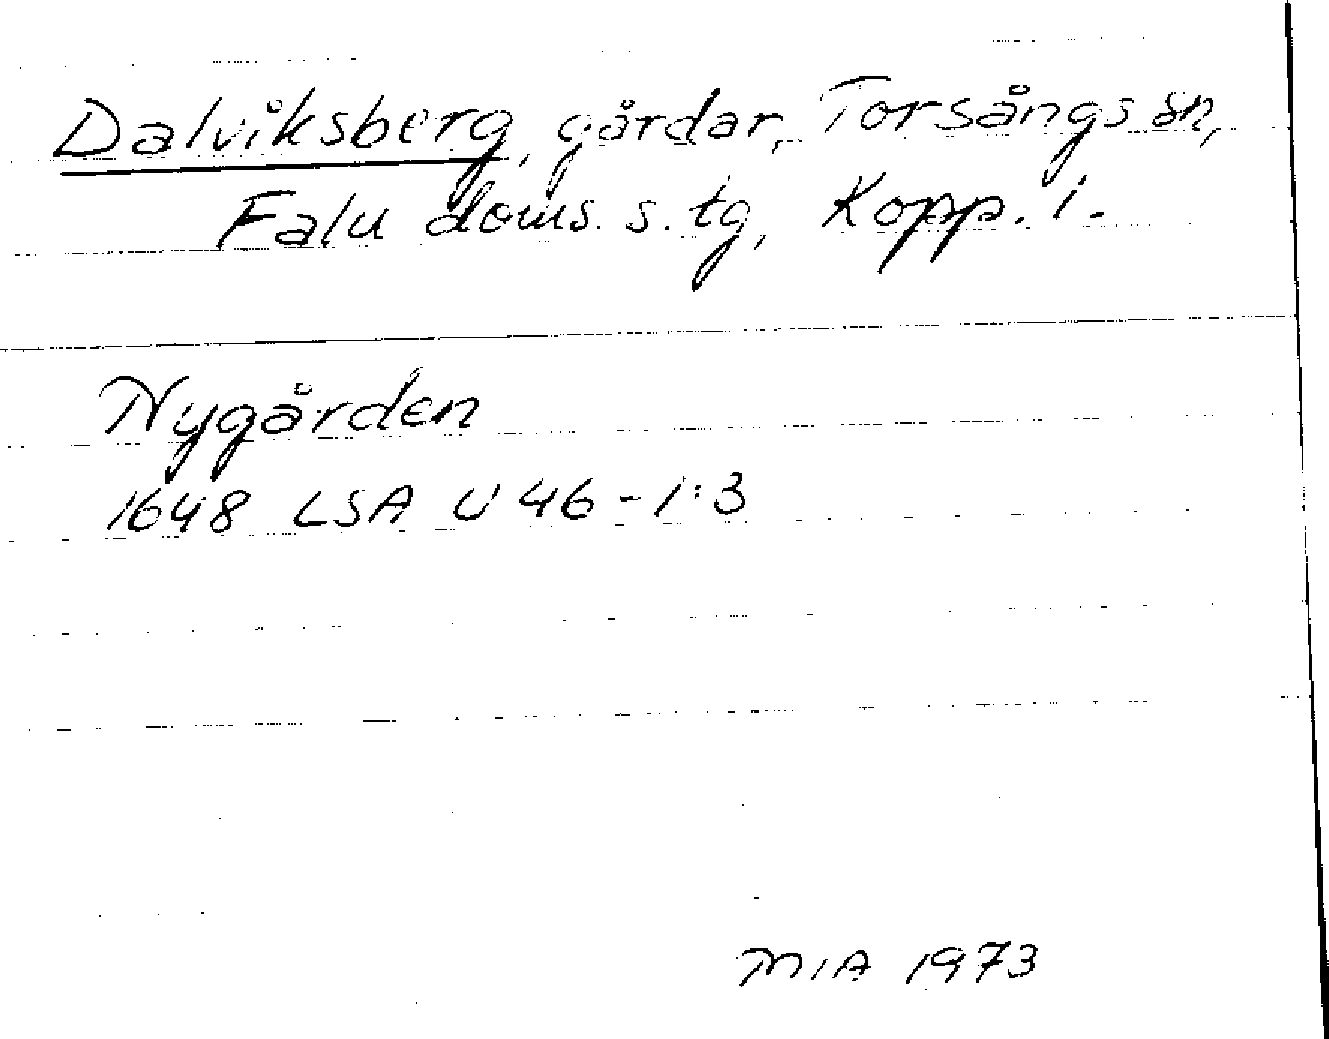 Dalviksberg, gårdar, Torsångs sn,
Falu doms. s. tg, Kopp. l.
Nygården
1648 LSA U 46-1:3
MIA 1973